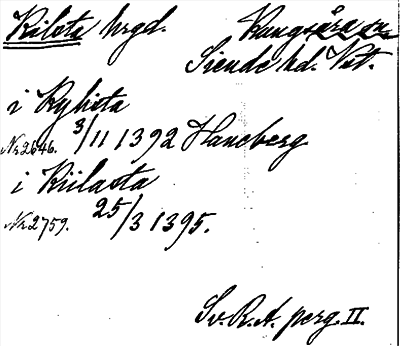 Kilsta hrgd.
Kungsåra sn.
Siende hd. Vst.
i Kylista
Nr 2646. 3/11 1392 Haneberg
i Kiilasta
Nr 2759. 25/3 1395.
Sv. R. A. perg. II.